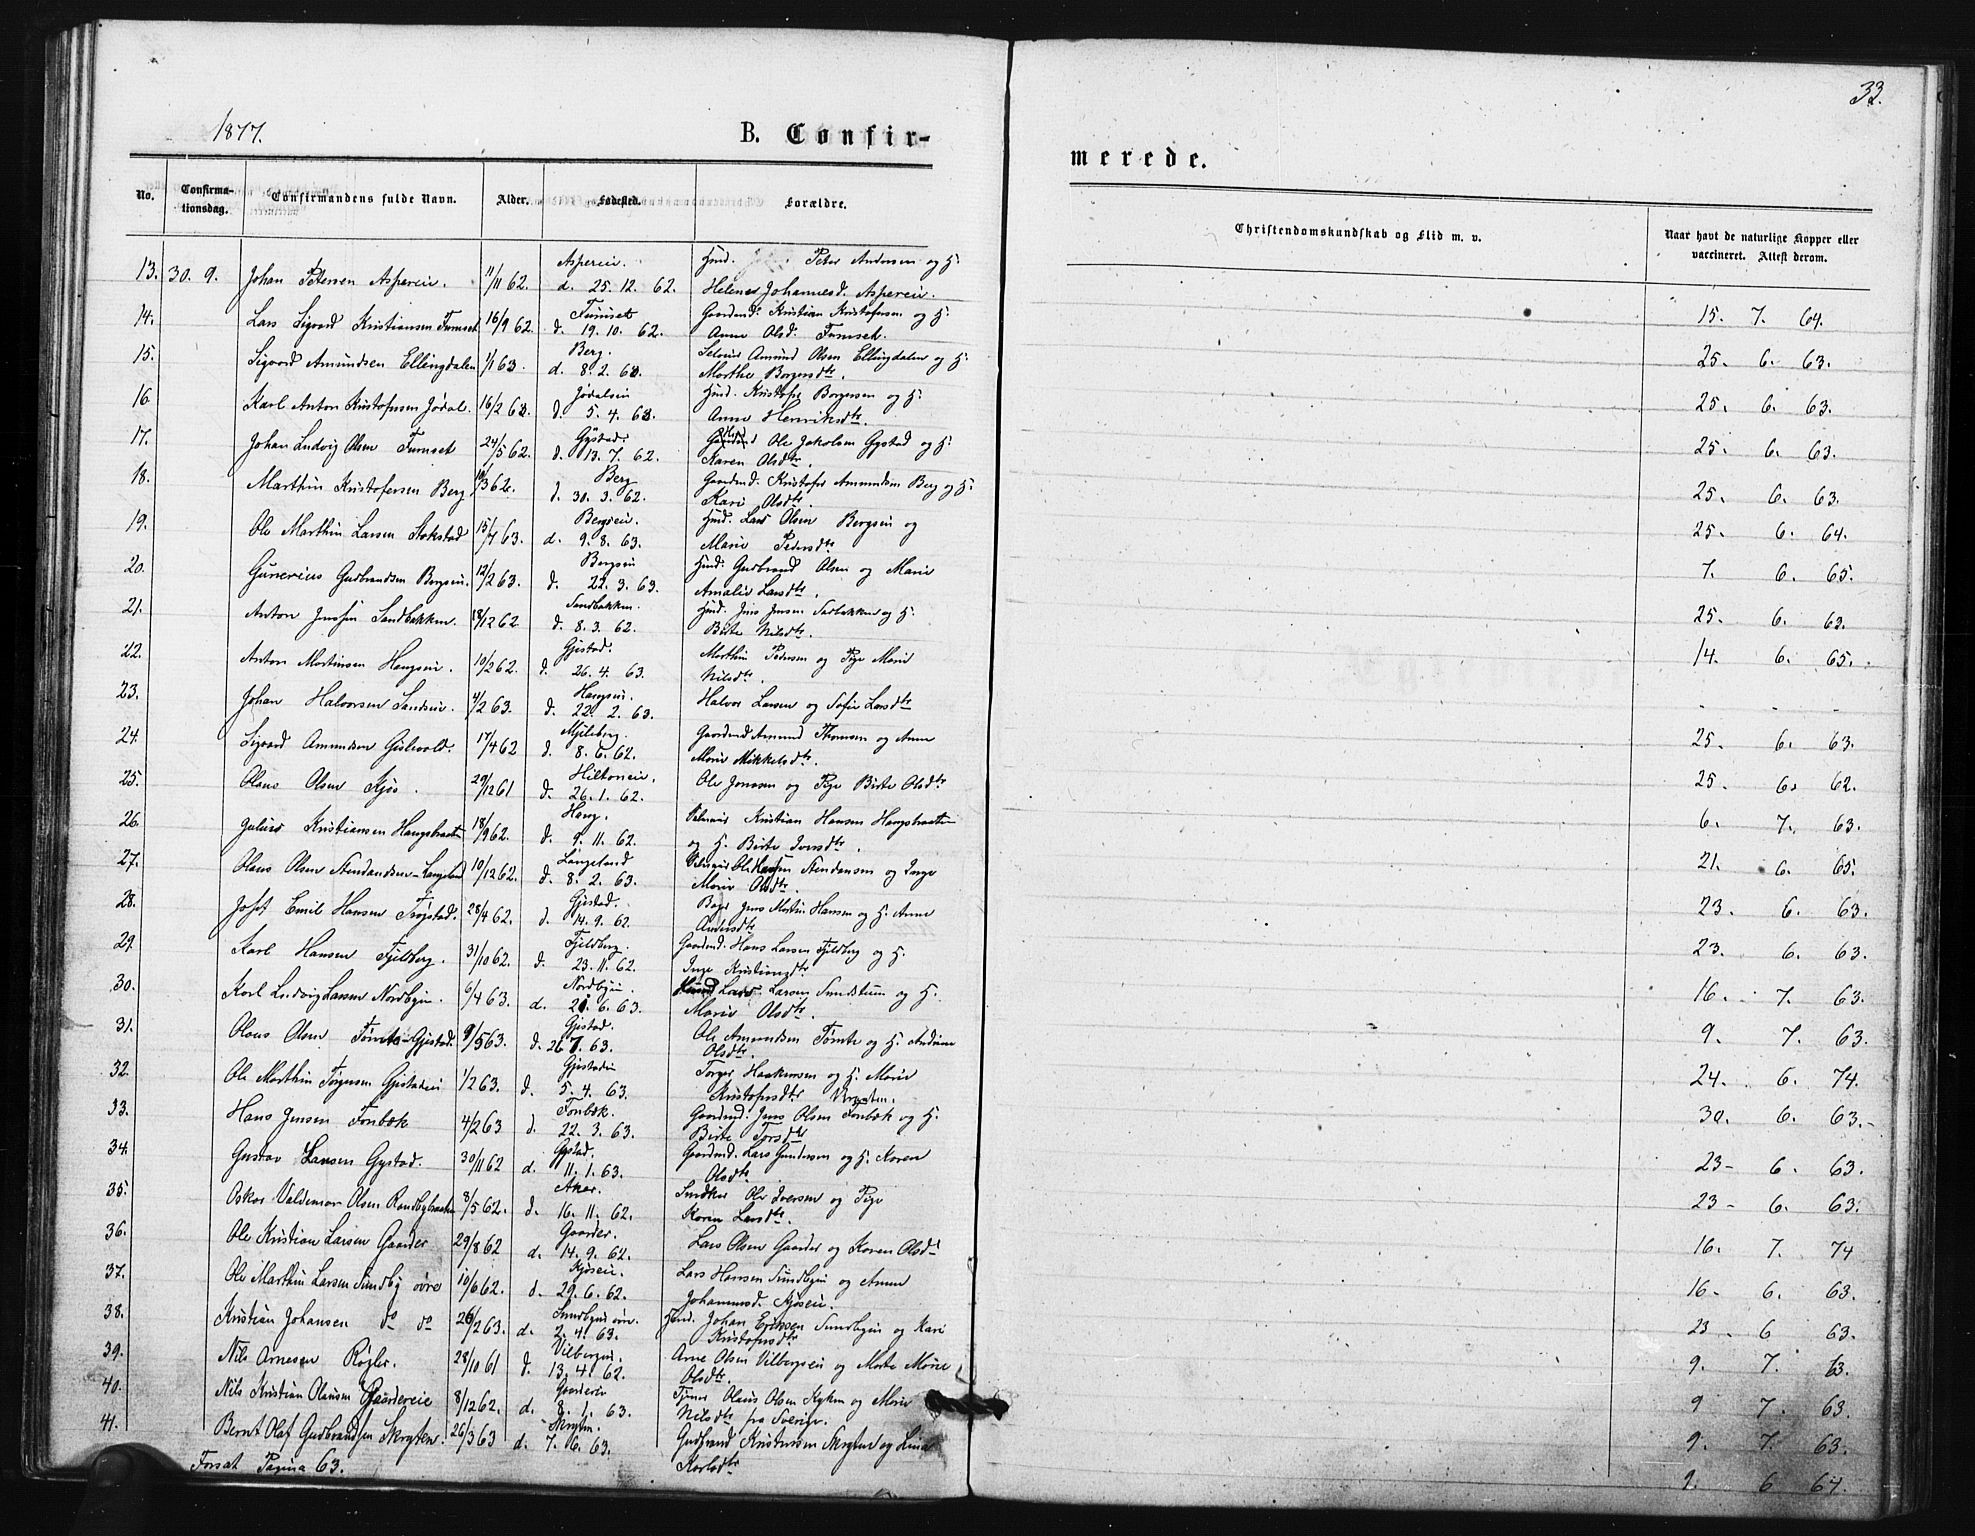 33.
1877.
B. Confir-
merede.
No.
Confirma-
tionsdag.
Confirmandens fulde Navn.
Alder.
Fødested.
Forældre.
Christendomskundskab og Flid m. v.
Naar havt de naturlige Kopper eller
vaccineret. Attest derom.
Aspereie. Huusd. Peter Andersen og H.
13. 30. 9. Johan Petersen Aspereie. 11/11 62. d. 25. 12. 62. Helene Johannesd. Aspereie.
15. 7. 64.
14. Furuset Gaardmd. Kristian Kristofersen og H.
Lars Sigvard Kristiansen Furuset 16/9 62. d. 19. 10. 62. Anne Olsd. Furuset.
25. 6. 63.
15. Berg. Amund Olsen Ellingdalen og H.
Sigvard Amundsen Ellingdalen 1/1 63. d. 8. 2. 63. Marthe Borgersdtr.
25. 6. 63.
16. Jødalseie Huusd. Kristofer Borgersen og H.
Karl Anton Kristofersen Jødal. 16/2 63. d. 5. 4. 63. Anne Henriksdtr.
25. 6. 63.
17. Gystad. Ole Jakobsen Gystad og H.
Johan Ludvig Olsen Furuset 24/5 62. d. 13. 7. 62. Karen Olsdtr.
25. 6. 63.
18. Berg Gaardmd. Kristofer Amundsen Berg og H.
Marthin Kristofersen Berg 3 62. d. 30. 3. 62. Kari Olsdtr.
25. 6. 64.
19. Bergseie. Huusd. Lars Olsen Bergseie og
Ole Marthin Larsen Stokstad 15/7 63. d. 9. 8. 63. Marie Pedersdtr.
7. 6. 65.
20. Bergseie Huusd. Gudbrand Olsen og Marie
Gunerius Gudbrandsen Bergseie. 12/2 63. d. 22. 3. 63. Amalie Larsdtr.
25. 6. 63.
21. Sandbakken. Huusd. Jens Jensen og H.
Anton Jensen Sandbakken. 18/12 62 d. 8. 3. 62. Birte Nilsdtr.
14. 6. 65.
22. Gjistad. Marthin Pedersen og Pige Marie
Anton Martinsen Haugseie. 10/2 62. d. 26. 4. 63. Nilsdtr.
- - -
23. Haugseie. Halvor Larsen og Sofie Larsdtr
Johan Halvorsen Sandseie. 4/2 63. d. 22. 2. 63.
25. 6. 63.
24. Gaardmd Amund Thomsen og Anne
Sigvard Amundsen Gislevold. 17/4 62 d. 8. 6. 62. Marie Mikkelsdtr.
25. 6. 62.
25. Hiltoneie. Ole Jonssen og Pige Birte Olsdtr
Olaus Olsen Kjos. 29/12 61 d. 26. 1. 62.
6. 7. 63.
26. Haug. Kristian Hansen Haugsbraaten
Julius Kristiansen Haugsbraaten 18/9 62. d. 9. 11. 62. og H. Birte Iversdtr.
21. 6. 65.
27. Langeland Ole Hansen Stendansen og Inge
Olaus Olsen Stendansen-Langeland 10/12 62. d. 8. 2. 63. Marie Olsdtr.
23. 6. 63.
28. Gjistad. Jens Martin Hansen og H. Anne
Josef Emil Hansen Trøgstad. 28/4 62. d. 14. 9. 62 Andersdtr.
23. 6. 63.
29. Fjeldberg. Gaardmd. Hans Larsen Fjeldberg og H.
Karl Hansen Fjeldberg. 31/10 62. d. 23. 11. 62. Inge Kristiansdtr
16. 7. 63.
30. Nordbyeie. Lars Larsen Sundstuen og H.
Karl Ludvig Larsen Nordbyeie. 6/4 63. d. 21. 6. 63. Marie Olsdtr.
9. 7. 63.
31. Gjistad. Ole Amundsen Tømte og H. Andrine
Olaus Olsen Tømte-Gjistad. 9/5 63. d. 26 7. 63. Olsdtr.
24. 6. 74.
32. Gjistadeie Torger Haakensen og H. Marie
Ole Marthin Torgersen Gjistadeie 1/2 63. d. 5. 4. 63. Kristofersdtr
30. 6. 63.
33. Fonbæk. Gaardmd. Jens Olsen Fonbæk og H.
Hans Jensen Fonbæk 4/2 63 d. 22. 3. 63. Birte Torsdtr
23- 6. 63.
34. Gystad. Gaardmd. Lars Gundersen og H. Karen
Gustav Larsen Gystad. 30/11 62 d. 11. 1. 63. Olsdtr.
23- 6. 63.
35. Aker. Ole Iversen og Pige
Oskar Valdemar Olsen Randbybraaten 8/5 62. d. 16. 11. 62. Karen Larsdtr.
16. 7. 74
36. Gaarder. Lars Olsen Gaarder og Karen Olsd
Ole Kristian Larsen Gaarder 29/8 62 d. 14. 9. 62.
16. 6. 63.
37. Kjøseie. Lars Hansen Sundbyeie og Anne
Ole Marthin Larsen Sundby øvre 10/6 62. d. 29. 6. 62. Johannesd. Kjøseie.
23. 6 63.
38. Huusd. Johan Eriksen Sundbyeie og Kari
Kristian Johansen do do 26/2 63. d. 2. 4. 63. Kristofersdtr
9. 7. 63.
39. Vilbergeie. Arne Olsen Vilbergseie og Marte Marie
Nils Arnesen Røgler. 28/10 61 d. 13. 4. 62. Olsdtr.
9 7. 63.
40. Gaardereie Tjener Olaus Olsen Kyken og Marie
Nils Kristian Olaussen Gaardereie 8/12 62. d. 8. 1. 63. Nilsdtr fra Sverige.
9. 7. 63.
41. Skrytten. Gudbrand Kristensen Skrytten og Lina
Bernt Olaf Gudbrandsen Skrytten. 26/3 63 d. 7. 6. 63. Karlsdtr
9. 6 64.
Forsat Pagina 63.